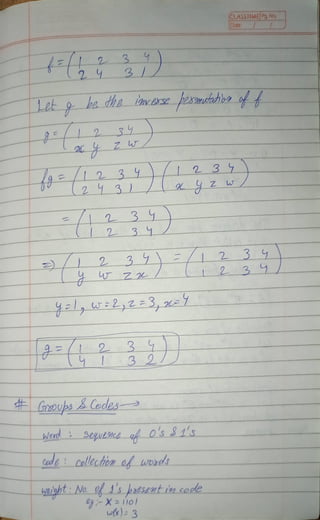 CLASSMATE Pg. No.
Date / /
f = ( 1 2 3 4
2 4 3 1 )
Let g be the inverse permutation of f
g = ( 1 2 3 4
x y z w )
fg = ( 1 2 3 4 ) ( 1 2 3 4
2 4 3 1 ) ( x y z w )
= ( 1 2 3 4
1 2 3 4 )
=> ( 1 2 3 4 ) = ( 1 2 3 4
y w z x ) ( 1 2 3 4 )
y=1, w=2, z=3, x=4
g = ( 1 2 3 4
4 1 3 2 )
# Groups & Codes →
word : sequence of 0's & 1's
code : collection of words
weight : No. of 1's present in code
eg :- x = 1101
w(x) = 3